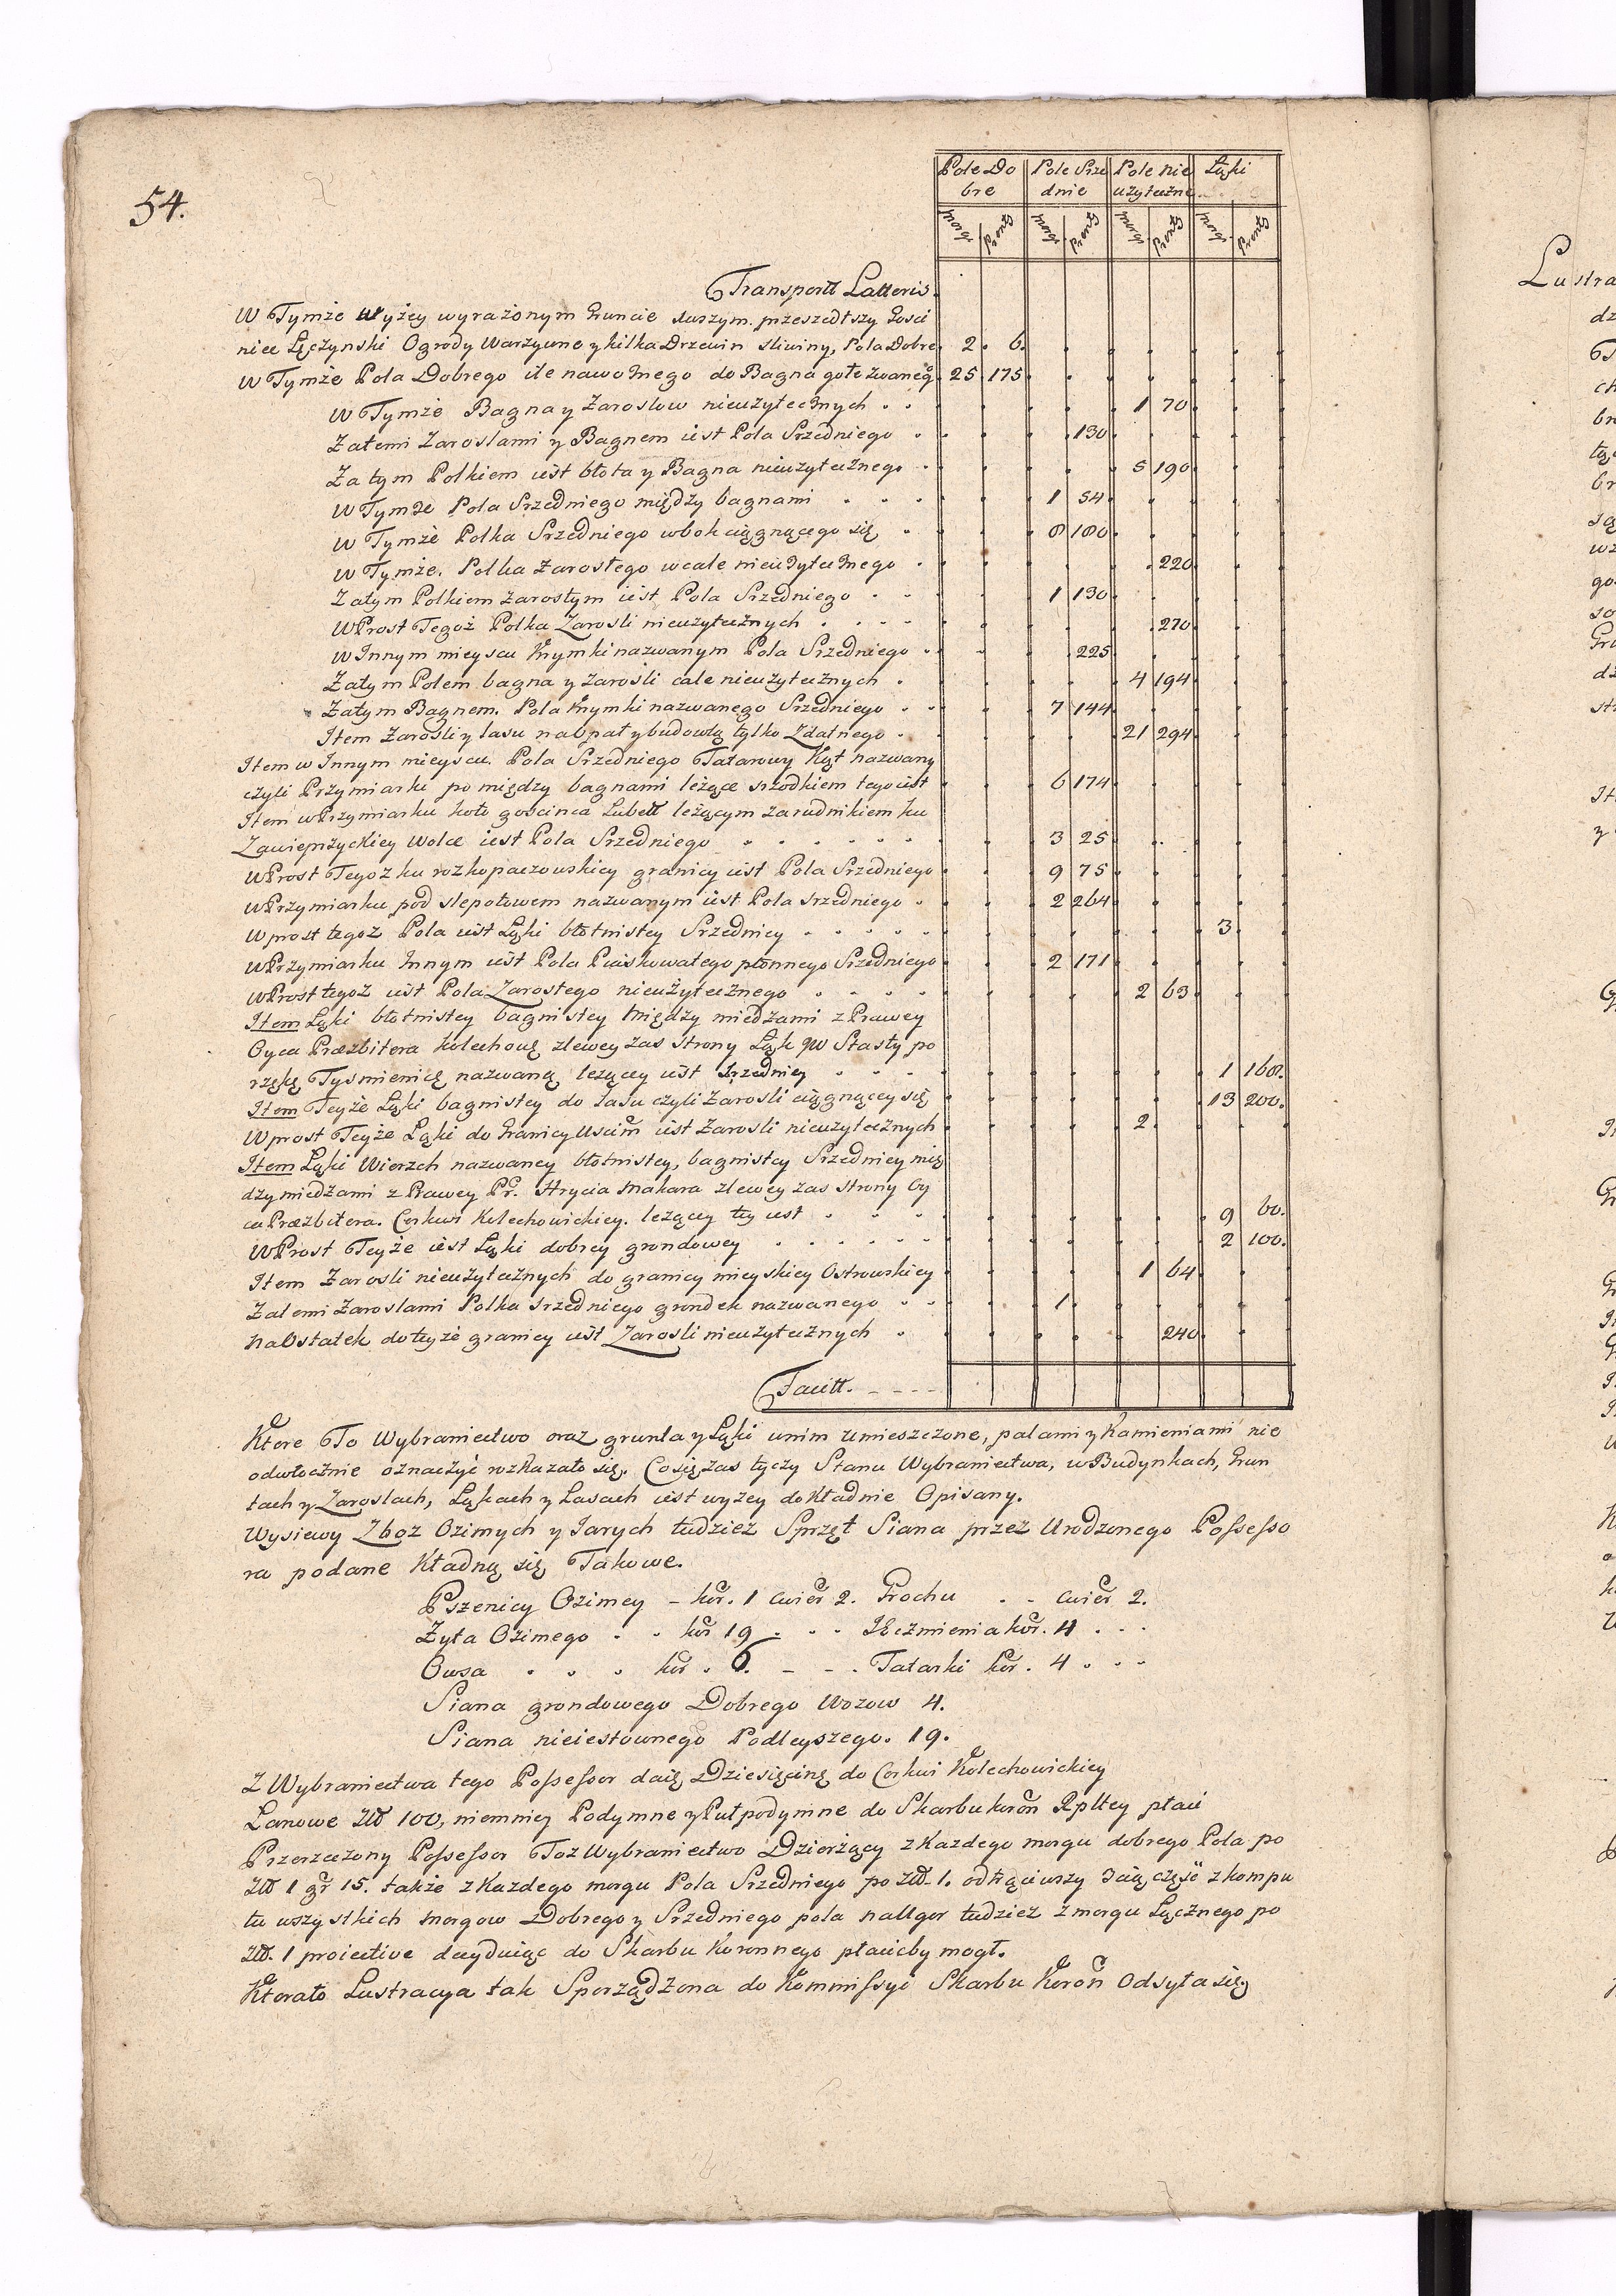 54.
Pole Do Pole Srze Pole nie Łąki
bre dnie użyteczne
morgi Pręty morgi Pręty morgi Pręty morgi Pręty
Transportt Latteris.
W Tymże wyżey wyrażonym Gruncie przeszedłszy Gosci
niec Łęczynski Ogrody Warzywne y kilka Drzewin sliwiny, Pola Dobre 2. 6.
W Tymże Pola Dobrego ile nawoznego do Bagna zwaneg 25 175
W Tymże Bagna y Zaroslow nieużytecznych 1 70
Zatemi Zaroslami y Bagnem iest Pola Srzedniego 130
Za tym Polkiem iest błota y Bagna nieużytecznego 5 190
W Tymże Pola Srzedniego między bagnami 1 54
W Tymże Polka Srzedniego wbok ciągnącego się 8 180
W Tymże. Polka Zarosłego wcale nieużytecznego 220
Zatym Polkiem zarostym iest Pola Srzedniego 1 130
WProst Tegoż Polka Zarosli nieużytecznych 270
W Innym mieyscu Knymki nazwanym Pola Srzedniego 225
Zatym Polem bagna y zarosli cale nieużytecznych 4 194
Zatym Bagnem. Pola Knymki nazwanego Srzedniego 7 144
Item Zarosli y lasu naopał y budowlą tylko Zdatnego 21 294
Item w Innym mieyscu. Pola Srzedniego Tatarowy Kąt nazwany
czyli Przymiarki pomiędzy bagnami leżące srzodkiem tego iest 6 174
Item wPrzymiarku koło goscinca Lubett leżącym zarudnikiem ku
Zawieprzyckiey Wolce iest Pola Srzedniego 3 25
WProst Tegoz ku rozkopaczowskiey granicy iest Pola Srzedniego 9 75
wPrzymiarku pod slepotowem nazwanym iest Pola srzedniego 2 264
Wprost tegoz Pola iest Łąki błotnistey Srzedniey 3
wPrzymiarku Innym iest Pola Piaskowatego płonnego Srzedniego 2 171
WProst tegoz iest Pola Zarostego nieużytecznego 2 63
Item Łąki błotnistey bagnistey między miedzami z Prawey
Oyca Præzbitera kolechowę zlewey zas Strony Łąk po
rzękę Tysmienicę nazwaną leżącey iest srzedniey 1 168.
Item Teyże Łąki bagnistey do lasu czyli Zarosli ciągnącey się 13 200.
Wprost Teyże Łąki do Granicy Uscim iest Zarosli nieużytecznych 2
Item Łąki Wierzch nazwaney błotnistey, bagnistey Srzedniey mię
dzy miedzami z Prawey Pr. Hrycia Makara zlewey zas strony Oy
ca Præzbitera. Cerkwi Kolechowickiey. leżącey tey iest 9 60.
WProst Teyże iest Łąki dobrey grondowey 2 100.
Item Zarosli nieużytecznych do granicy mieyskiey Ostrowskiey 1 64
Zatemi Zaroslami Polka srzedniego grondek nazwanego 1
naOstatek do teyże granicy iest Zarosli nieużytecznych 240
Facitt.
Ktore To Wybraniectwo oraz grunta y Łąki wnim umieszczone, palami y Kamieniami nie
odwłocznie oznaczyć rozkazało się. Co się zas tyczy Stanu Wybraniectwa, w Budynkach, Grun
tach y Zaroslach, Łąkach y Lasach iest wyzey dokładnie Opisany.
Wysiewy Zboz Ozimych y Jarych tudziez Sprzęt Siana przez Urodzonego Possesso
ra podane Kładną się Takowe.
Pszenicy Ozimey - kor. 1 cwier 2. Grochu cwier 2.
Zyta Ozimego kor 19 JEczmienia kor. 4
Owsa kor. 6. Tatarki kor. 4
Siana grondowego Dobrego Wozow 4.
Siana nieiestownego Podleyszego. 19.
Z Wybraniectwa tego Possessor daię Dziesięcinę do Cerkwi Kolechowickiey
Lanowe Złł 100, niemniey Podymne y Pułpodymne do Skarbu koron Rpltey płaci
Przerzeczony Possessor Toz Wybraniectwo Dzierżący z Kazdego morgu dobrego Pola po
Złł 1 gr 15. także z Kazdego morgu Pola Srzedniego po Złł. 1. odtrąciwszy 3cią część z kompu
tu wszystkich morgow Dobrego y Srzedniego pola naUgor tudzież z morgu Łącznego po
Złł. 1 proiective do Skarbu Koronnego płacićby mogł.
Ktorato Lustracya tak Sporządzona do Kommissyi Skarbu Koron Odsyła się
Lustra